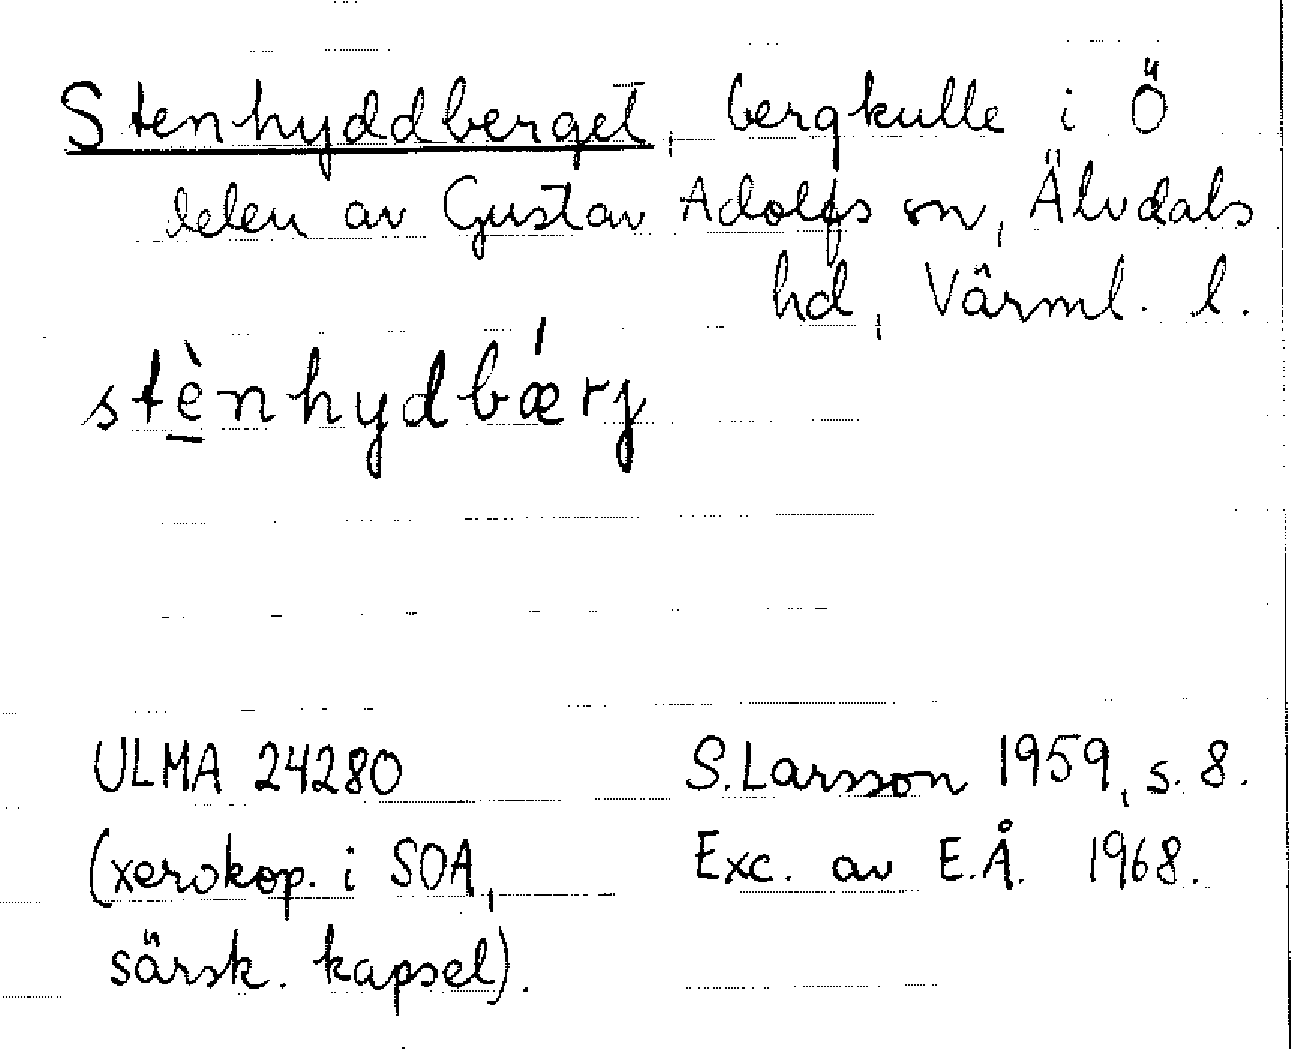 Stenhyddberget, bergkulle i Ö
delen av Gustav Adolfs sn, Älvdals
hd, Värml. l.
stènhydbǽrj
ULMA 24280
(xerokop. i SOA,
särsk. kapsel).
S. Larsson 1959, s. 8.
Exc. av E.Å. 1968.